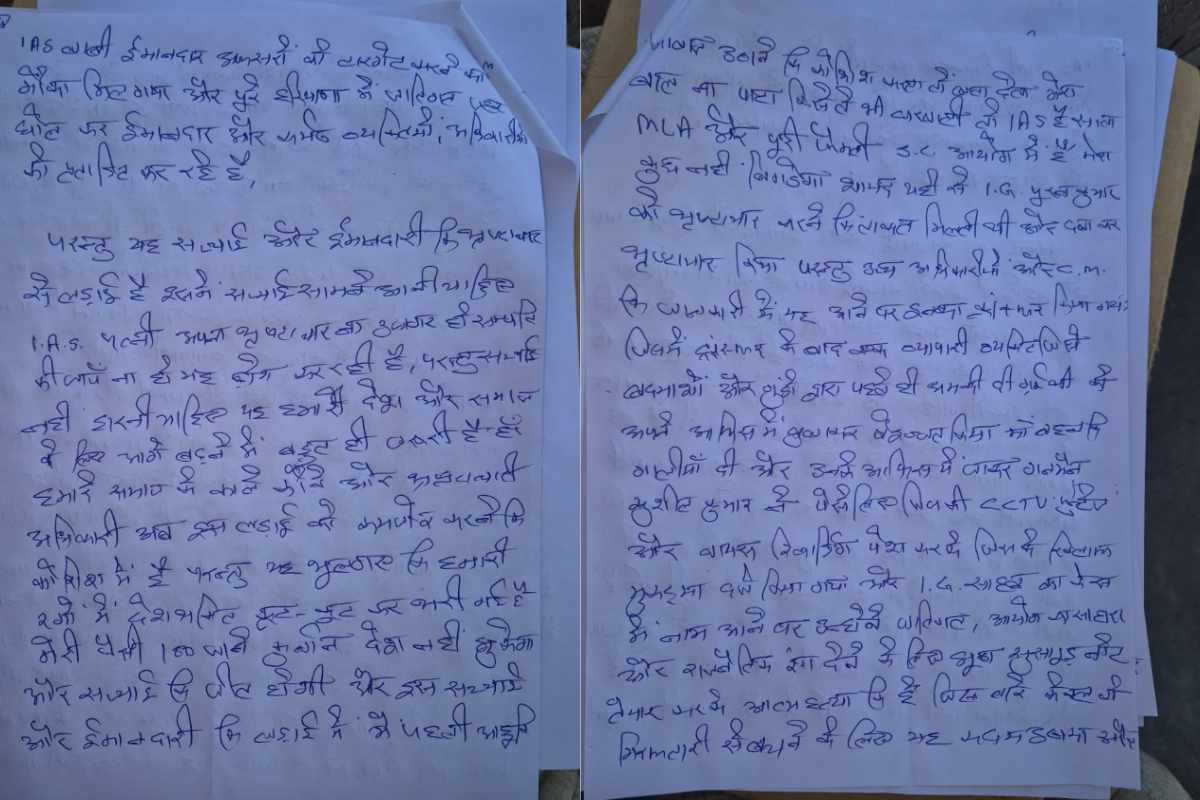 IAS लाबी ईमानदार अफसरों को टारगेट करने का
मौका मिल गया और पूरे हरियाणा में जातिगत
घोल कर ईमानदार और कर्मठ व्यक्तियों, अधिकारीयों
को प्रताड़ित कर रहे है,
परन्तु यह सच्चाई और ईमानदारी कि भ्रष्टाचार
से लड़ाई है इसमें सच्चाई सामने आनी चाहिए
I.A.S. पत्नी अपना भ्रष्टाचार का उजागर हो सम्पति
की जाँच ना हो यह ढोंग कर रही है, परन्तु सच्चाई
नही हारनी चाहिए यह हमारे देश और समाज
के लिए आगे बढ़ने में बहुत ही जरूरी है
हमारे समाज के और
अधिकारी अब इस लड़ाई को कमजोर करने कि
कोशिश में है परन्तु यह भूल गए कि हमारी
रगों में देशभक्ति कूट-कूट कर भरी गई है
मेरी जैसी 100 जाने कुर्बान देश नहीं झुकेगा
और सच्चाई कि जीत होगी और इस सच्चाई
और ईमानदारी कि लड़ाई में मैं पहली आहुति
आवाज उठाने कि कोशिश करता तो कहा देता मेरा
बाल ना पाटा किसेते भी घरवाली तो IAS है साला
MLA और पूरी फैमली S.C. आयोग में है मेरा
कुछ नहीं बिगड़ेगा शायद यही से I.G. पुरन कुमार
को भ्रष्टाचार करने कि ताकत मिलती थी और दबा कर
भ्रष्टाचार किया परन्तु उच्च अधिकारीयों और C.M.
कि जानकारी में यह आने पर इनका ट्रांसफर किया गया
जिसमें ट्रांसफर के बाद एक व्यापारी व्यक्ति जिसे
बदमाशों और गुंडो द्वारा पहले ही धमकी दी गई थी को
अपने आफिस में बुलाकर बेइज्जत किया माँ बहन कि
गालीयाँ दी और उनके आफिस में जाकर गनमैन
सुशील कुमार ने पैसे लिए जिसकी CCTV फुटेज
और वायस रिकार्डिंग पेश करके जिस के खिलाफ
मुकद्दमा दर्ज किया गया और I.G. साहब का केस
में नाम आने पर उन्होंने जातिगत, आयोग का सहारा
और राजनैतिक रंग देने के लिए झूठा सुसाइड नोट
तैयार करके आत्महत्या कि है
गिरफ्तारी से बचने के लिए यह कदम उठाया और